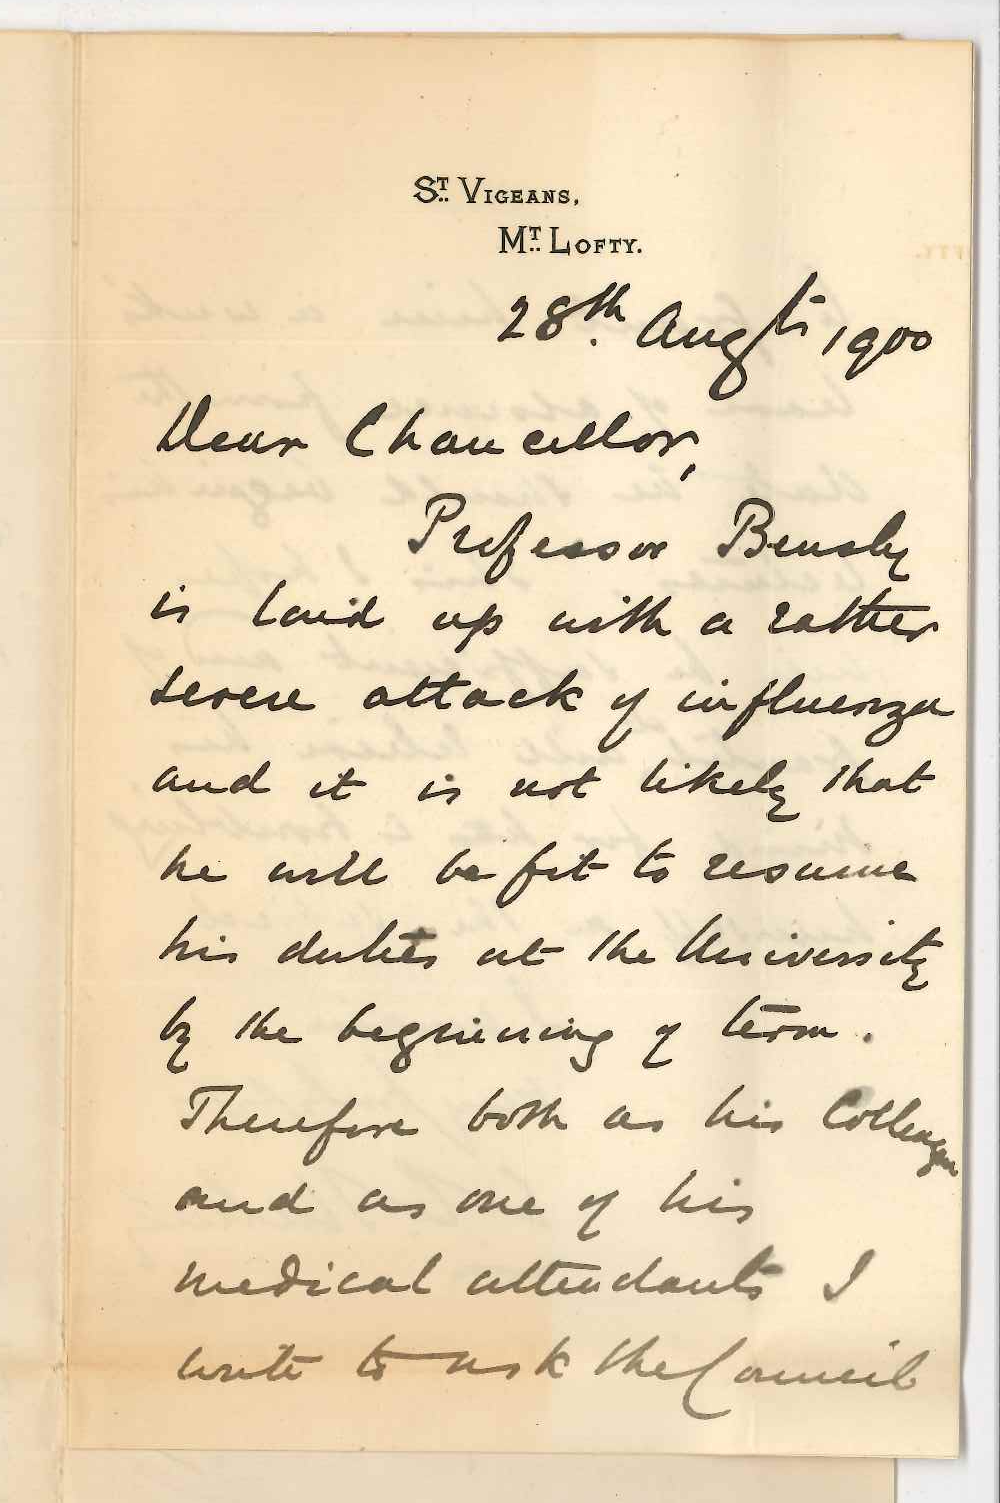 St. Vigeans,
Mt. Lofty.
28th. Augst 1900
Dear Chancellor,
Professor Bensly
is laid up with a rather
severe attack of influenza
and it is not likely that
he will be fit to resume
his duties at the University
by the beginning of term.
Therefore both as his Colleague
and as one of his
medical attendants I
write to ask the Council